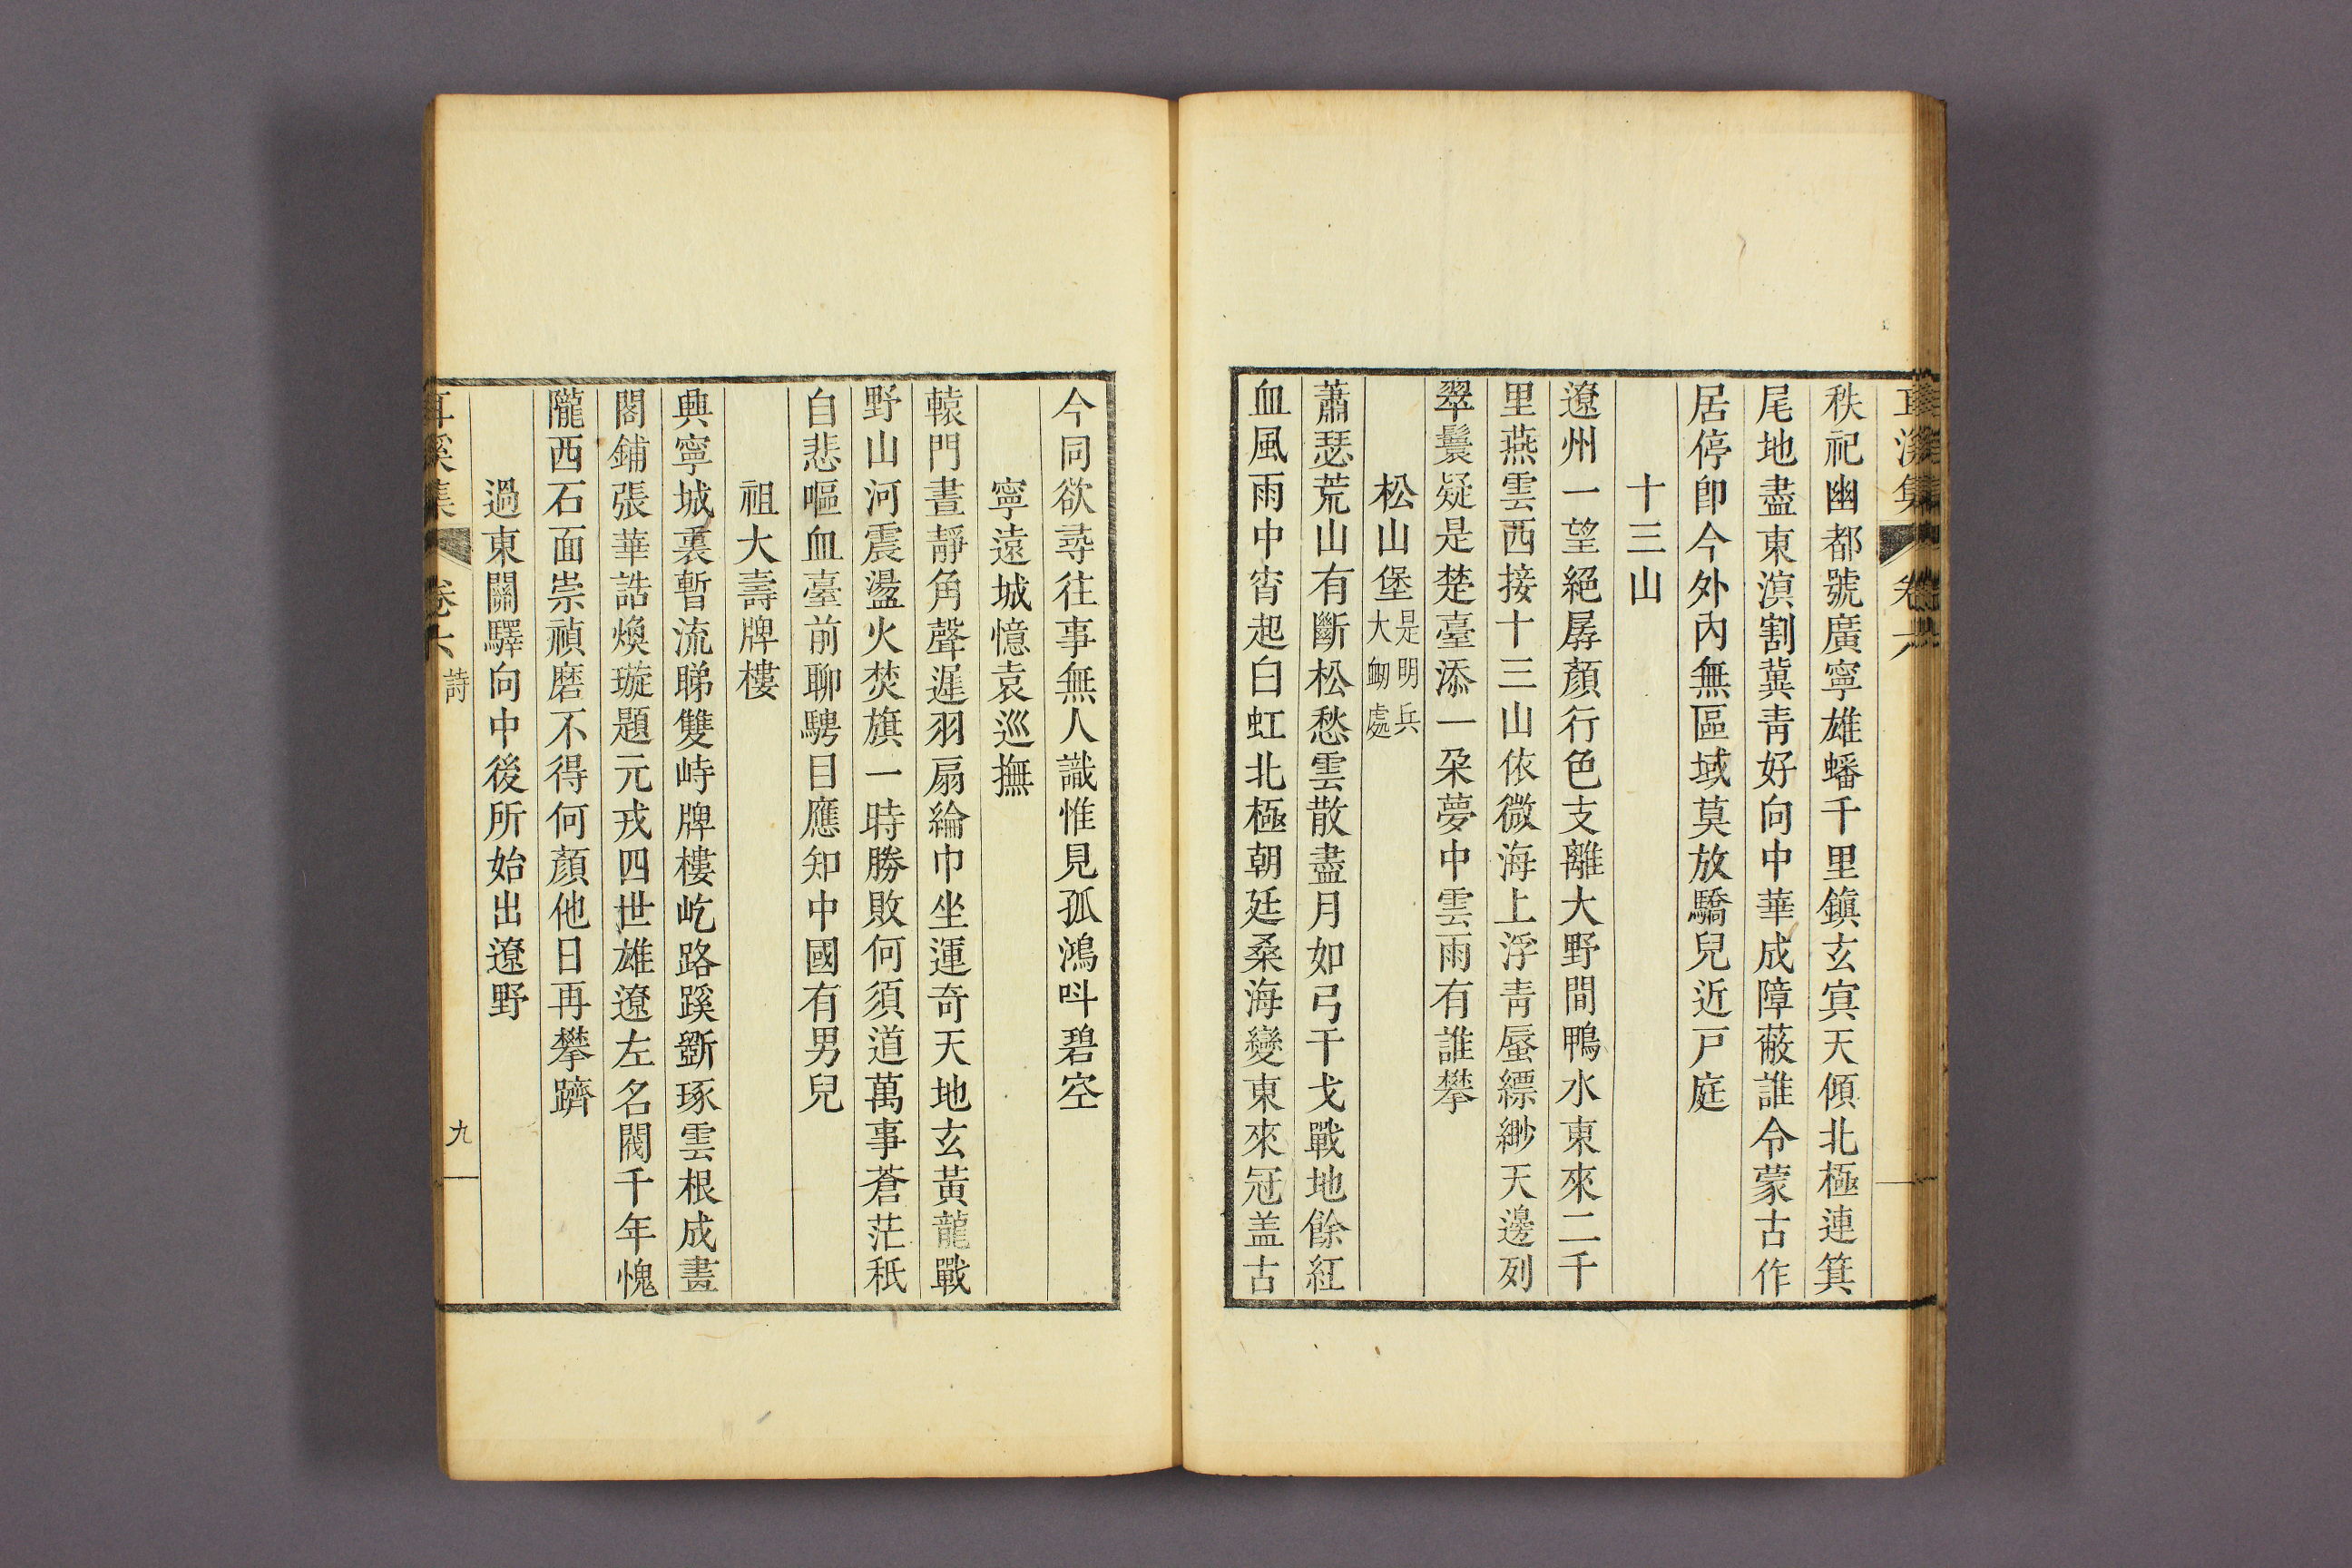 耳溪集 卷六
秩祀幽都號廣寧雄蟠千里鎭玄㝠天傾北極連箕
尾地盡東溟割冀靑好向中華成障蔽誰令蒙古作
居停卽今外內無區域莫放驕兒近戶庭
十三山
遼州一望絕孱顏行色支離大野間鴨水東來二千
里燕雲西接十三山依微海上浮靑蜃縹緲天邊列
翠鬟疑是楚臺添一朶夢中雲雨有誰攀
松山堡 是明兵大衂處
蕭瑟荒山有斷松愁雲散盡月如弓干戈戰地餘紅
血風雨中宵起白虹北極朝廷桑海變東來冠盖古
今同欲尋往事無人識惟見孤鴻呌碧空
寧遠城憶袁巡撫
轅門晝靜角聲遲羽扇綸巾坐運奇天地玄黃龍戰
野山河震盪火焚旗一時勝敗何須道萬事蒼茫秖
自悲嘔血臺前聊騁目應知中國有男兒
祖大壽牌樓
興寧城裏暫流睇雙峙牌樓屹路蹊斵琢雲根成畫
閣鋪張華誥煥璇題元戎四世雄遼左名閥千年愧
隴西石面崇禎磨不得何顏他日再攀躋
過東關驛向中後所始出遼野
耳溪集 卷六 詩 九